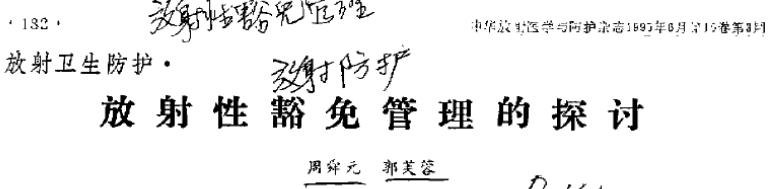 ·182·
放射性豁免管理
中华放射医学与防护杂志1995年6月第15卷第3期
放射卫生防护·
放射防护
放射性豁免管理的探讨
周舜元 郭芙蓉